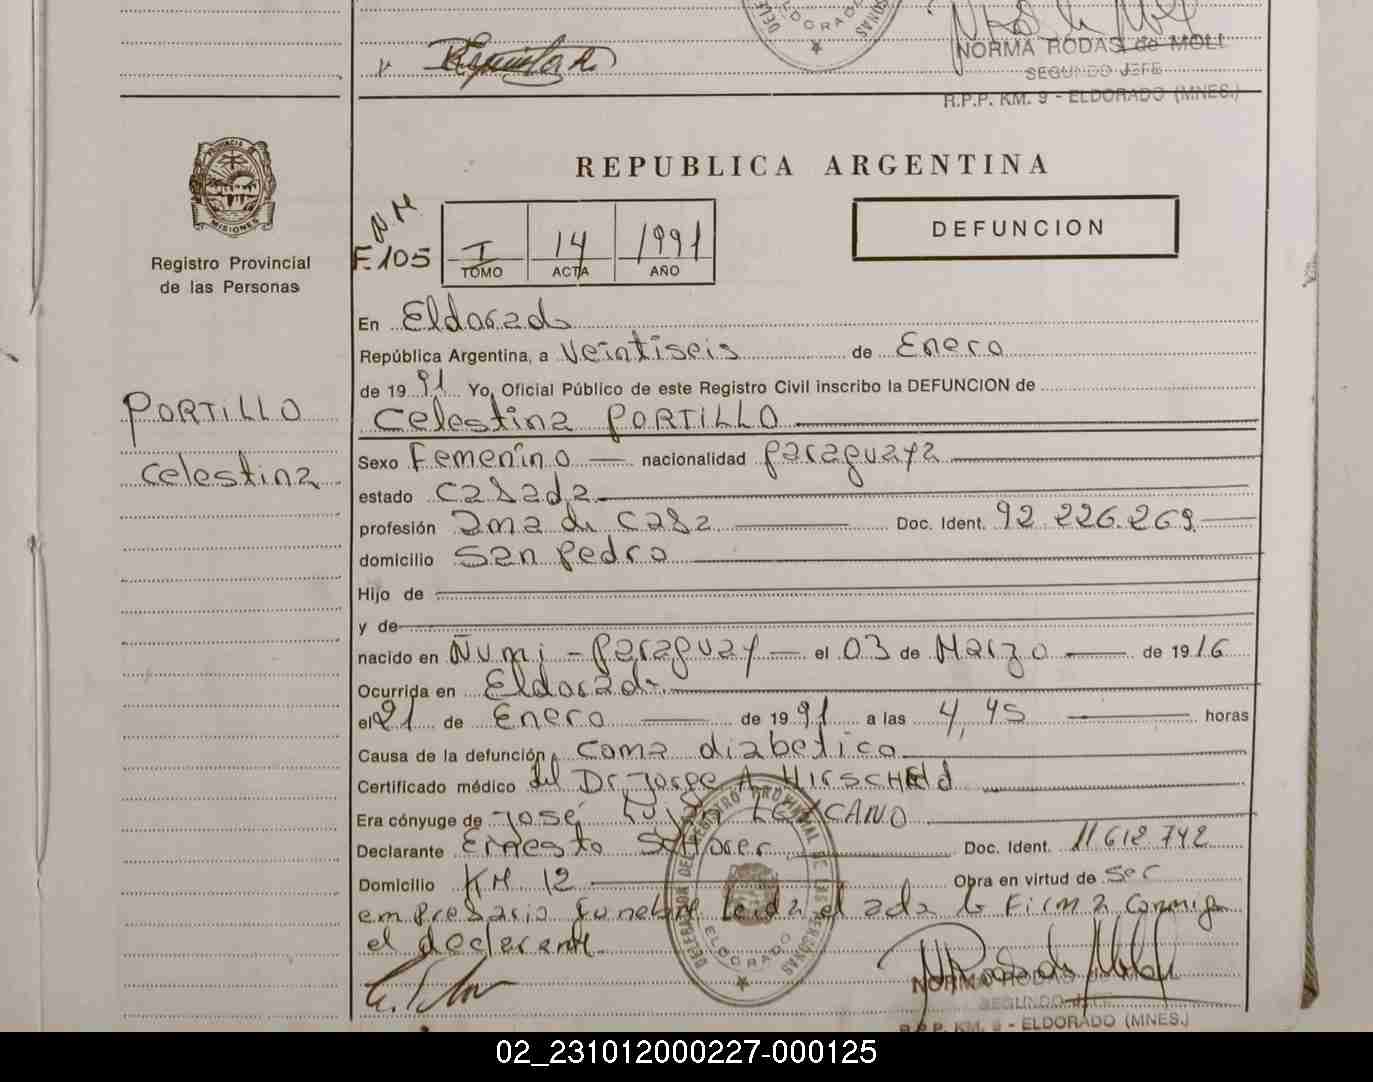 NORMA RODAS de MOLL
SEGUNDO JEFE
R.P.P. KM. 9 - ELDORADO (MNES.)
PROVINCIA DE
MISIONES
Registro Provincial
de las Personas
REPUBLICA ARGENTINA
NM
F.105
I 14 1991
TOMO ACTA AÑO
DEFUNCION
En Eldorado
República Argentina, a Veintiseis de Enero
de 19 91 Yo, Oficial Público de este Registro Civil inscribo la DEFUNCION de
PORTILLO
Celestina
Celestina PORTILLO
Sexo Femenino nacionalidad paraguaya
estado casada
profesión ama de casa Doc. Ident. 92.226.269
domicilio San Pedro
Hijo de
y de
nacido en Ñumi - Paraguay el 03 de Marzo de 19 16
Ocurrida en Eldorado
el 21 de Enero de 19 91 a las 4,45 horas
Causa de la defunción coma diabetico
Certificado médico del Dr. Jorge A. 
Era cónyuge de José Luján LEZCANO
Declarante Ernesto Doc. Ident. 11 612 742
Domicilio KM 12 Obra en virtud de ser
empresario funebre Leida el acta la Firma conmigo
el declarante.
REGISTRO PROVINCIAL DE LAS PERSONAS
ELDORADO
NORMA RODAS de MOLL
SEGUNDO JEFE
R.P.P. KM. 9 - ELDORADO (MNES.)
02_231012000227-000125